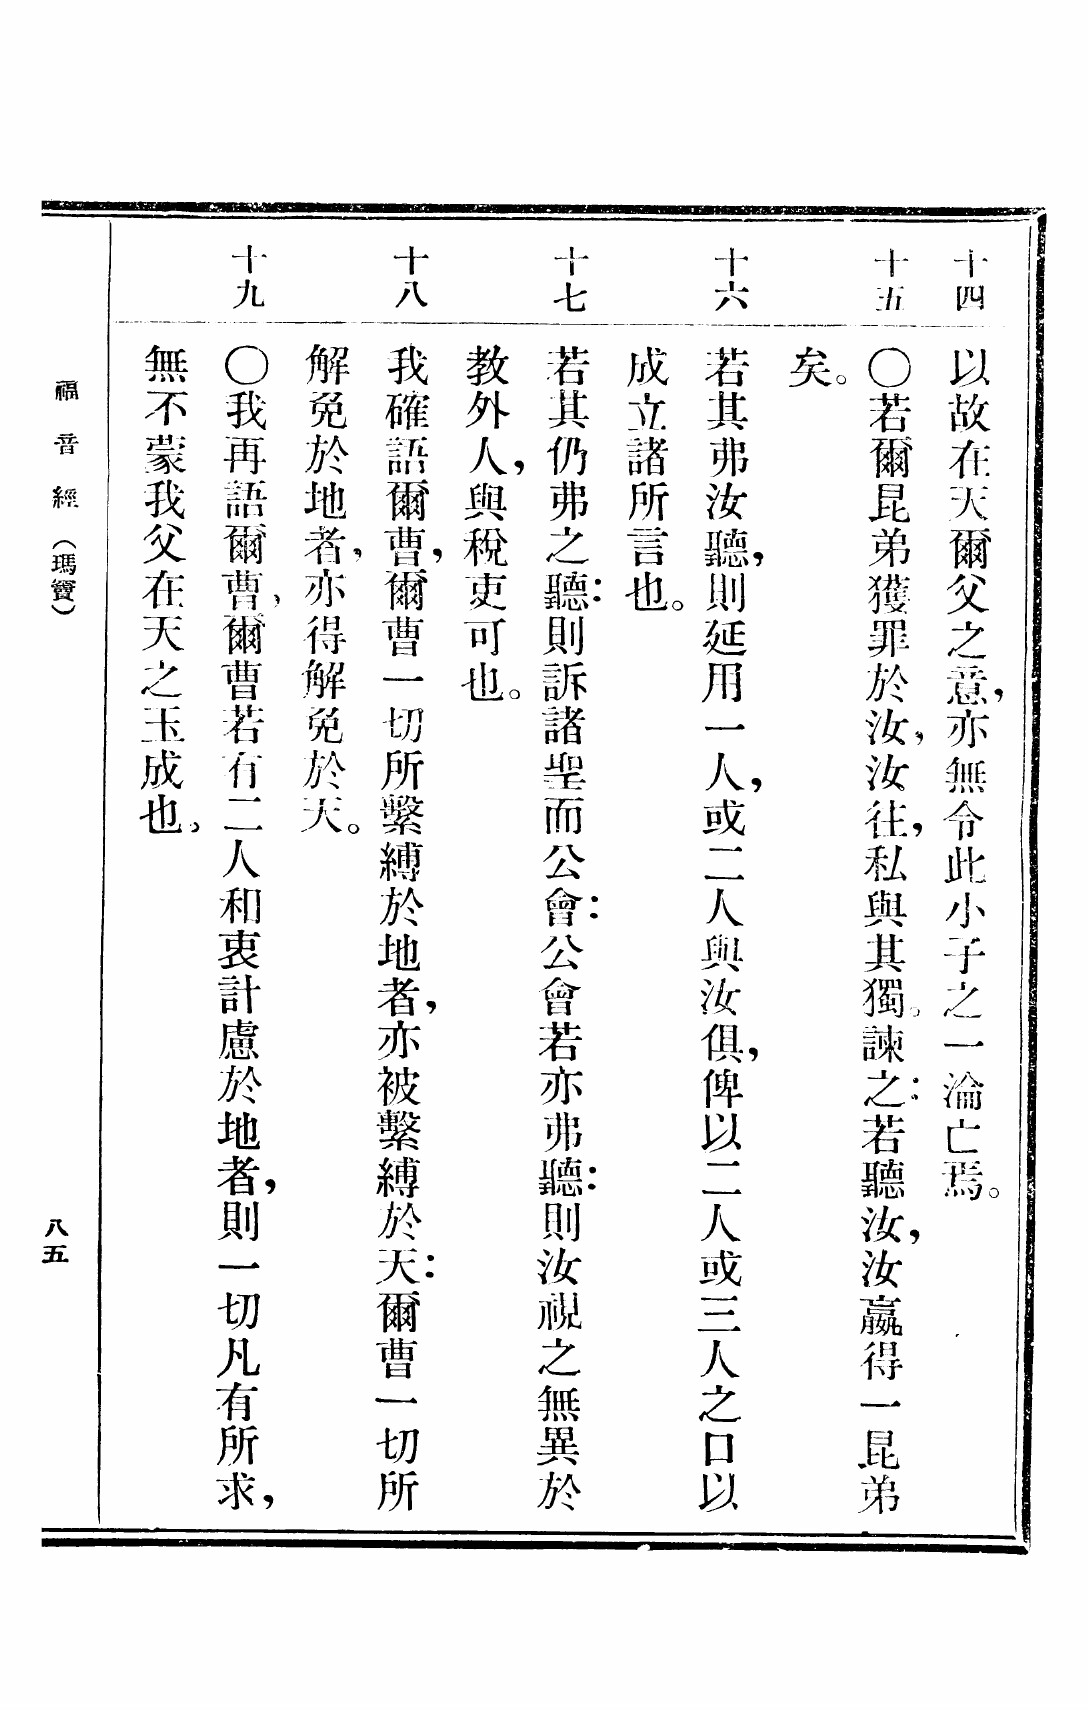 十四
以故在天爾父之意，亦無令此小子之一淪亡焉。
十五
〇若爾昆弟獲罪於汝，汝往，私與其獨。諫之：若聽汝，汝贏得一昆弟
矣。
十六
若其弗汝聽，則延用一人，或二人與汝俱，俾以二人或三人之口以
成立諸所言也。
十七
若其仍弗之聽：則訴諸聖而公會：公會若亦弗聽：則汝視之無異於
教外人，與稅吏可也。
十八
我確語爾曹，爾曹一切所繫縛於地者，亦被繫縛於天：爾曹一切所
解免於地者，亦得解免於天。
十九
〇我再語爾曹，爾曹若有二人和衷計慮於地者，則一切凡有所求，
無不蒙我父在天之玉成也。
福音經（瑪竇）
八五